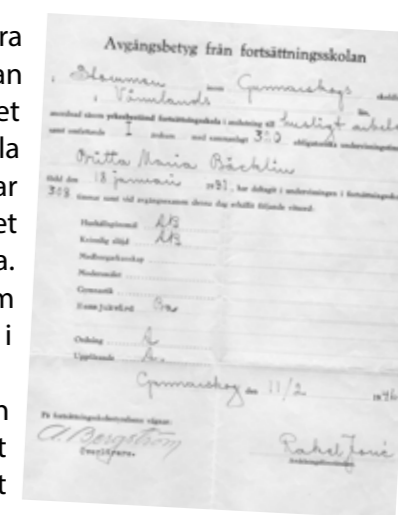 ra
an
et
la
ar
et
a.
m
i
n
t
t
Avgångsbetyg från fortsättningsskolan
i inom Gunnarskogs
i Värmlands län,
anordnad såsom yrkesbestämd fortsättningsskola i anslutning till husligt arbete
samt omfattande I årskurs med sammanlagt 320 obligatoriska undervisningstimmar
Britta Maria Bäcklin
född den 18 januari 1931, har deltagit i undervisningen i fortsättningsskolan
308 timmar samt vid avgångsexamen denna dag erhållit följande vitsord:
Hushållsgöromål AB
Kvinnlig slöjd AB
Medborgarkunskap
Modersmålet
Gymnastik
Hemsjukvård Ba
Ordning A
Uppförande A.
Gunnarskog den 11/2 1946
På fortsättningsskolestyrelsens vägnar:
A. Bergström
Överlärare.
Rakel